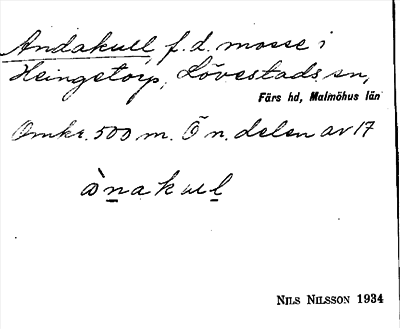 Andakull f.d. mosse i
Heingetorp, Lövestads sn,
Färs hd, Malmöhus län
Omkr. 500 m. Ö n. delen av 17
ànakul
NILS NILSSON 1934